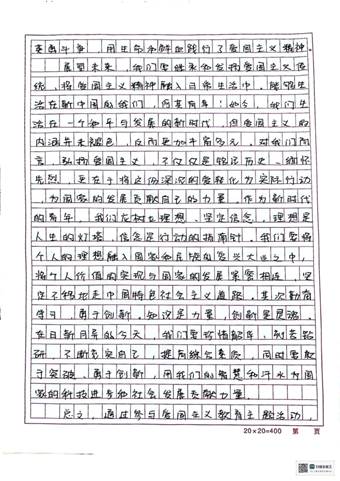 英勇斗争,用生命和鲜血践行了爱国主义精神。
展望未来,我们要继承和发扬爱国主义传
统,将爱国主义精神融入日常生活中。能够生
活在新中国的我们,何其有幸!如今,我们生
活在一个和平与发展的新时代,但爱国主义的
内涵并未褪色,反而更加丰富多元。对我们而
言,弘扬爱国主义,不仅仅是铭记历史、缅怀
先烈,更在于将这份深沉的爱转化为实际行动
,为国家的发展贡献自己的力量。作为新时代
的青年,我们应树立理想、坚定信念。理想是
人生的灯塔,信念是行动的指南针。我们要将
个人的理想融入国家和民族的复兴大业之中,
将个人价值的实现与国家的发展紧密相连,坚
定不移地走中国特色社会主义道路。其次勤奋
学习,勇于创新,知识是力量,创新是灵魂。
在日新月异的今天,我们要珍惜韶华,刻苦钻
研,不断充实自己,提高综合素质,同时要敢
于突破、勇于创新,用我们的智慧和汗水为国
家的科技进步和社会发展贡献力量。
总之,通过参与爱国主义教育主题活动,
20×20=400 第 页